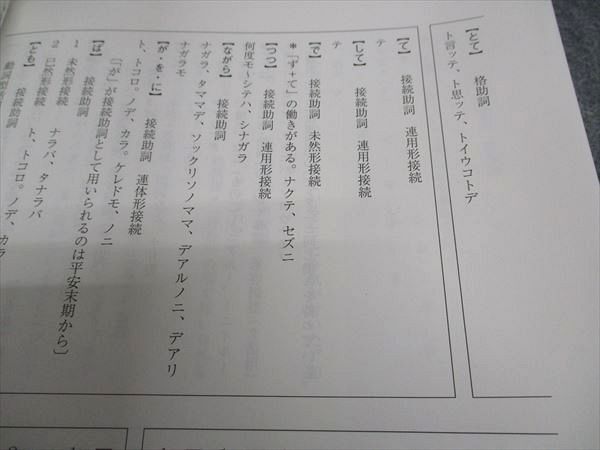 【とて】　格助詞
ト言ッテ、ト思ッテ、トイウコトデ
【て】　接続助詞　連用形接続
テ
【して】　接続助詞　連用形接続
テ
【で】　接続助詞　未然形接続
＊「ず＋て」の働きがある。ナクテ、セズニ
【つつ】　接続助詞　連用形接続
何度モ～シテハ、シナガラ
【ながら】　接続助詞
ナガラ、タママデ、ソックリソノママ、デアルノニ、デアリ
ナガラモ
【が・を・に】　接続助詞　連体形接続
ト、トコロ。ノデ、カラ。ケレドモ、ノニ
〔「が」が接続助詞として用いられるのは平安末期から〕
【ば】　接続助詞
１　未然形接続　ナラバ、タナラバ
２　已然形接続　ト、トコロ。ノデ、カラ
【とも】　接続助詞